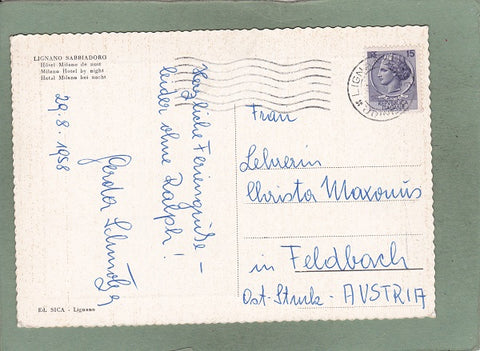 LIGNANO SABBIADORO
Hôtel Milano de nuit
Milano Hotel by night
Hotel Milano bei nacht
29.8.1958
Herzliche Feriengrüße –
leider ohne Ralph!
Gerda
15
LIGN
Frau
Lehrerin
Christa Maxonus
in Feldbach
Ost-Strmk - AUSTRIA
Ed. SICA - Lignano